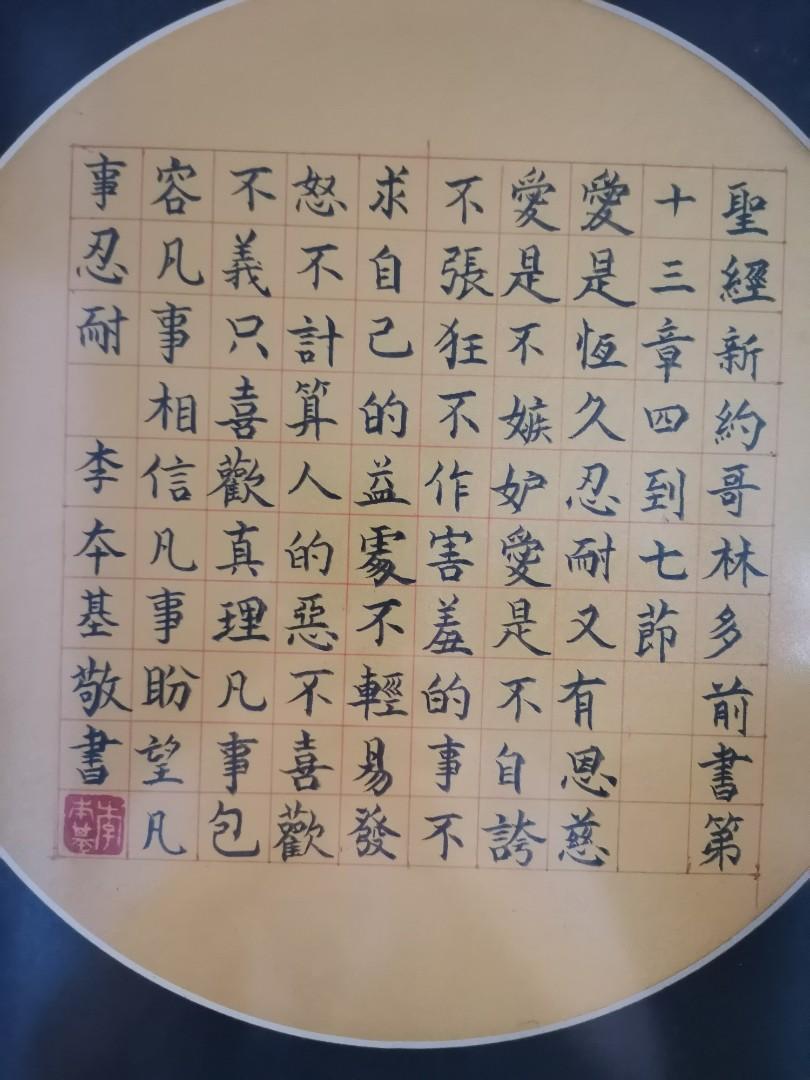 聖經新約哥林多前書第
十三章四到七節
愛是恆久忍耐又有恩慈
愛是不嫉妒愛是不自誇
不張狂不作害羞的事不
求自己的益處不輕易發
怒不計算人的惡不喜歡
不義只喜歡真理凡事包
容凡事相信凡事盼望凡
事忍耐 李本基敬書
李本基